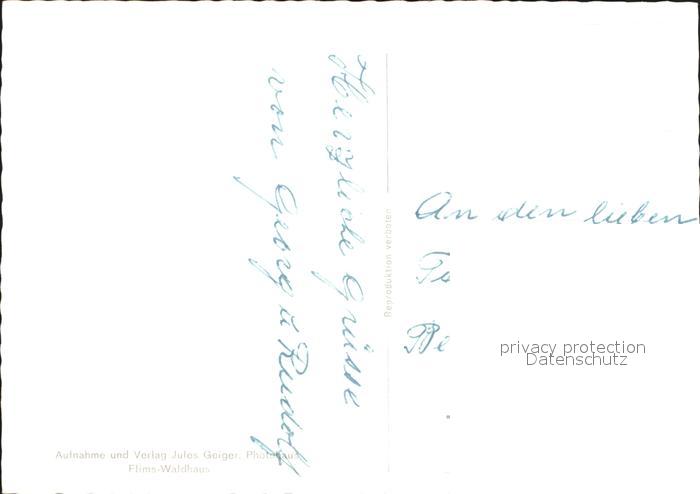 Herzliche Grüsse
von Georg u Rudolf
An den lieben
Reproduktion verboten
privacy protection
Datenschutz
Aufnahme und Verlag Jules Geiger, Photohaus
Flims-Waldhaus